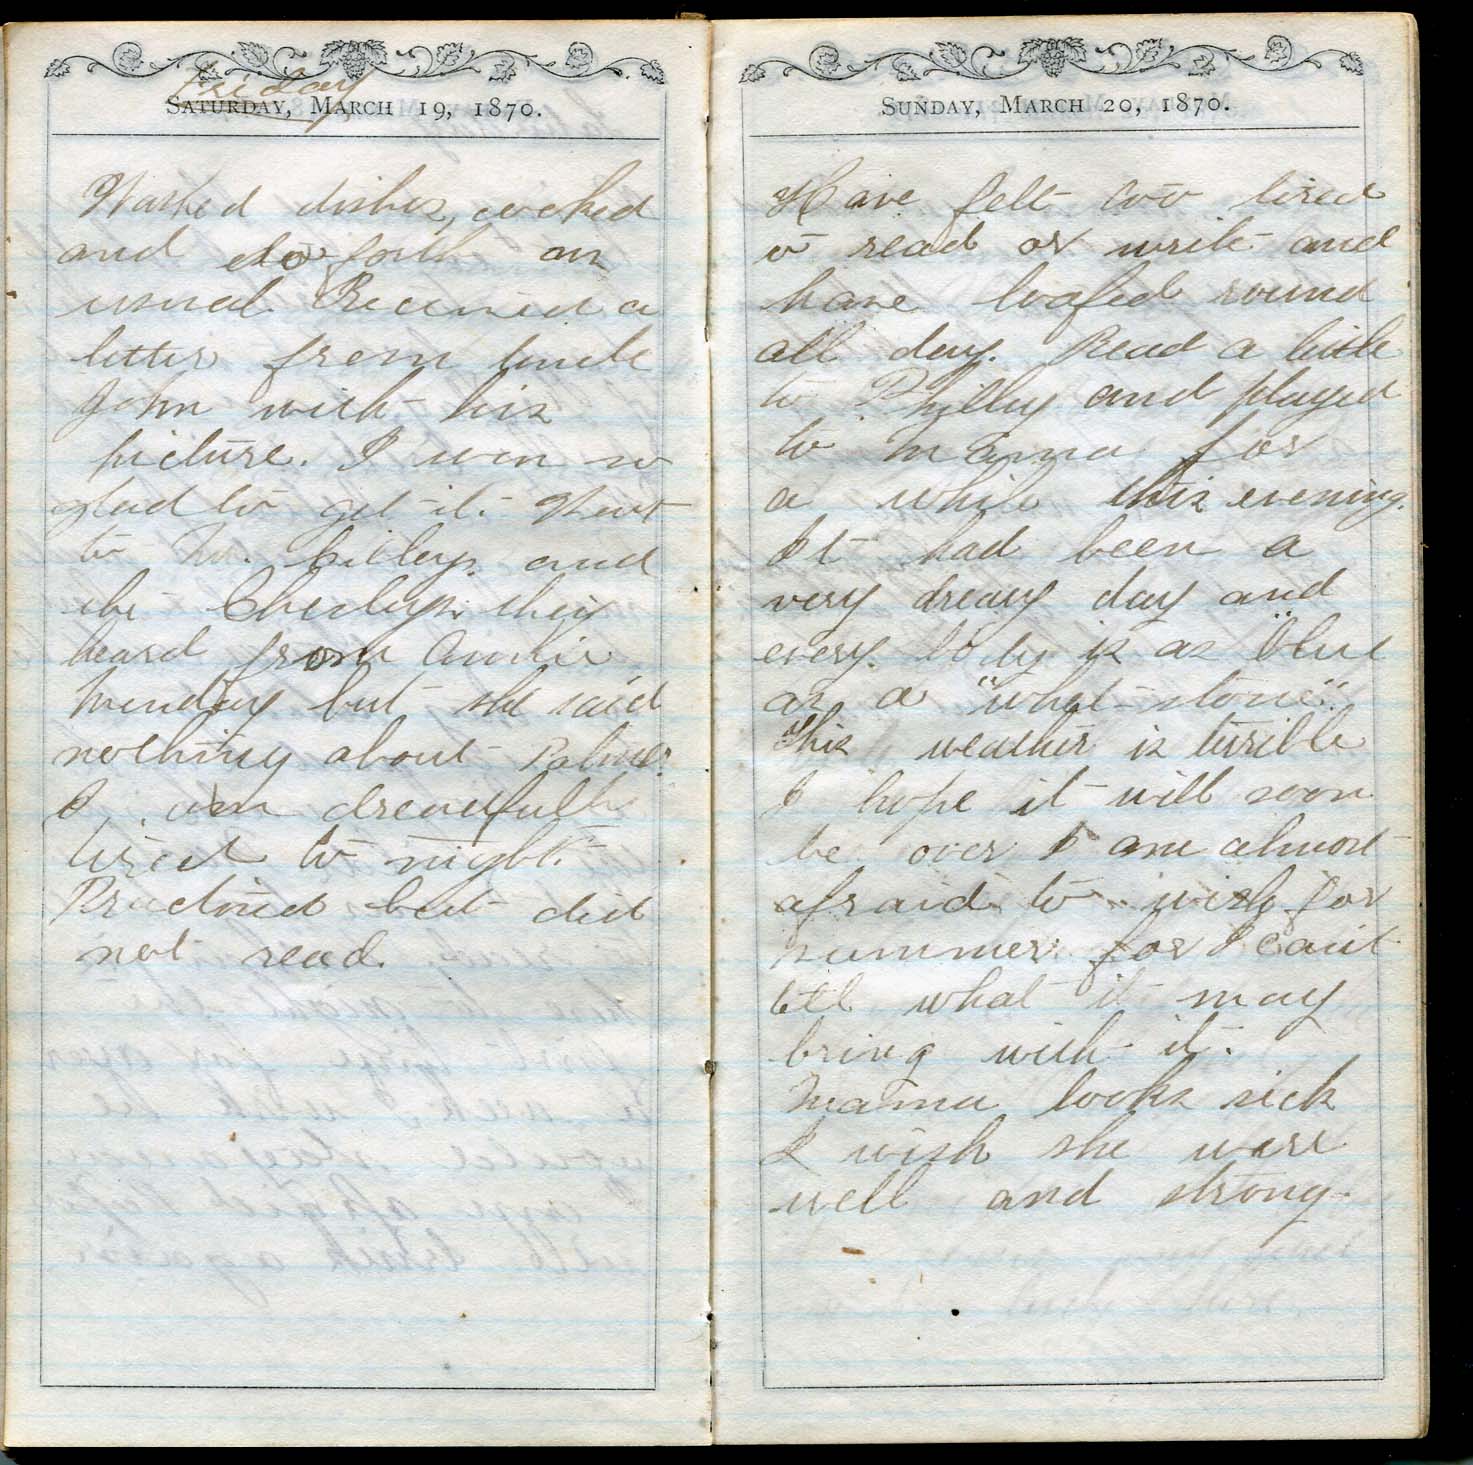 Friday
SATURDAY, MARCH 19, 1870.
Washed dishes, cooked
and so forth as
usual. Received a
letter from Uncle
John with his
picture. I was so
glad to get it. Went
to Mr. and
the they
heard from Annie
Munday but she said
nothing about Palmer.
I am dreadfully
tired to night.
Practiced but did
not read.
SUNDAY, MARCH 20, 1870.
Have felt too tired
to read or write and
have loafed round
all day. Read a little
to Philly and played
to mama for
a while this evening.
It had been a
very dreary day and
every body is as "blue
as a "whet-stone".
This weather is terrible
I hope it will soon
be over I am almost
afraid to wish for
summer for I cant
tell what it may
bring with it.
Mama looks sick
I wish she were
well and strong.